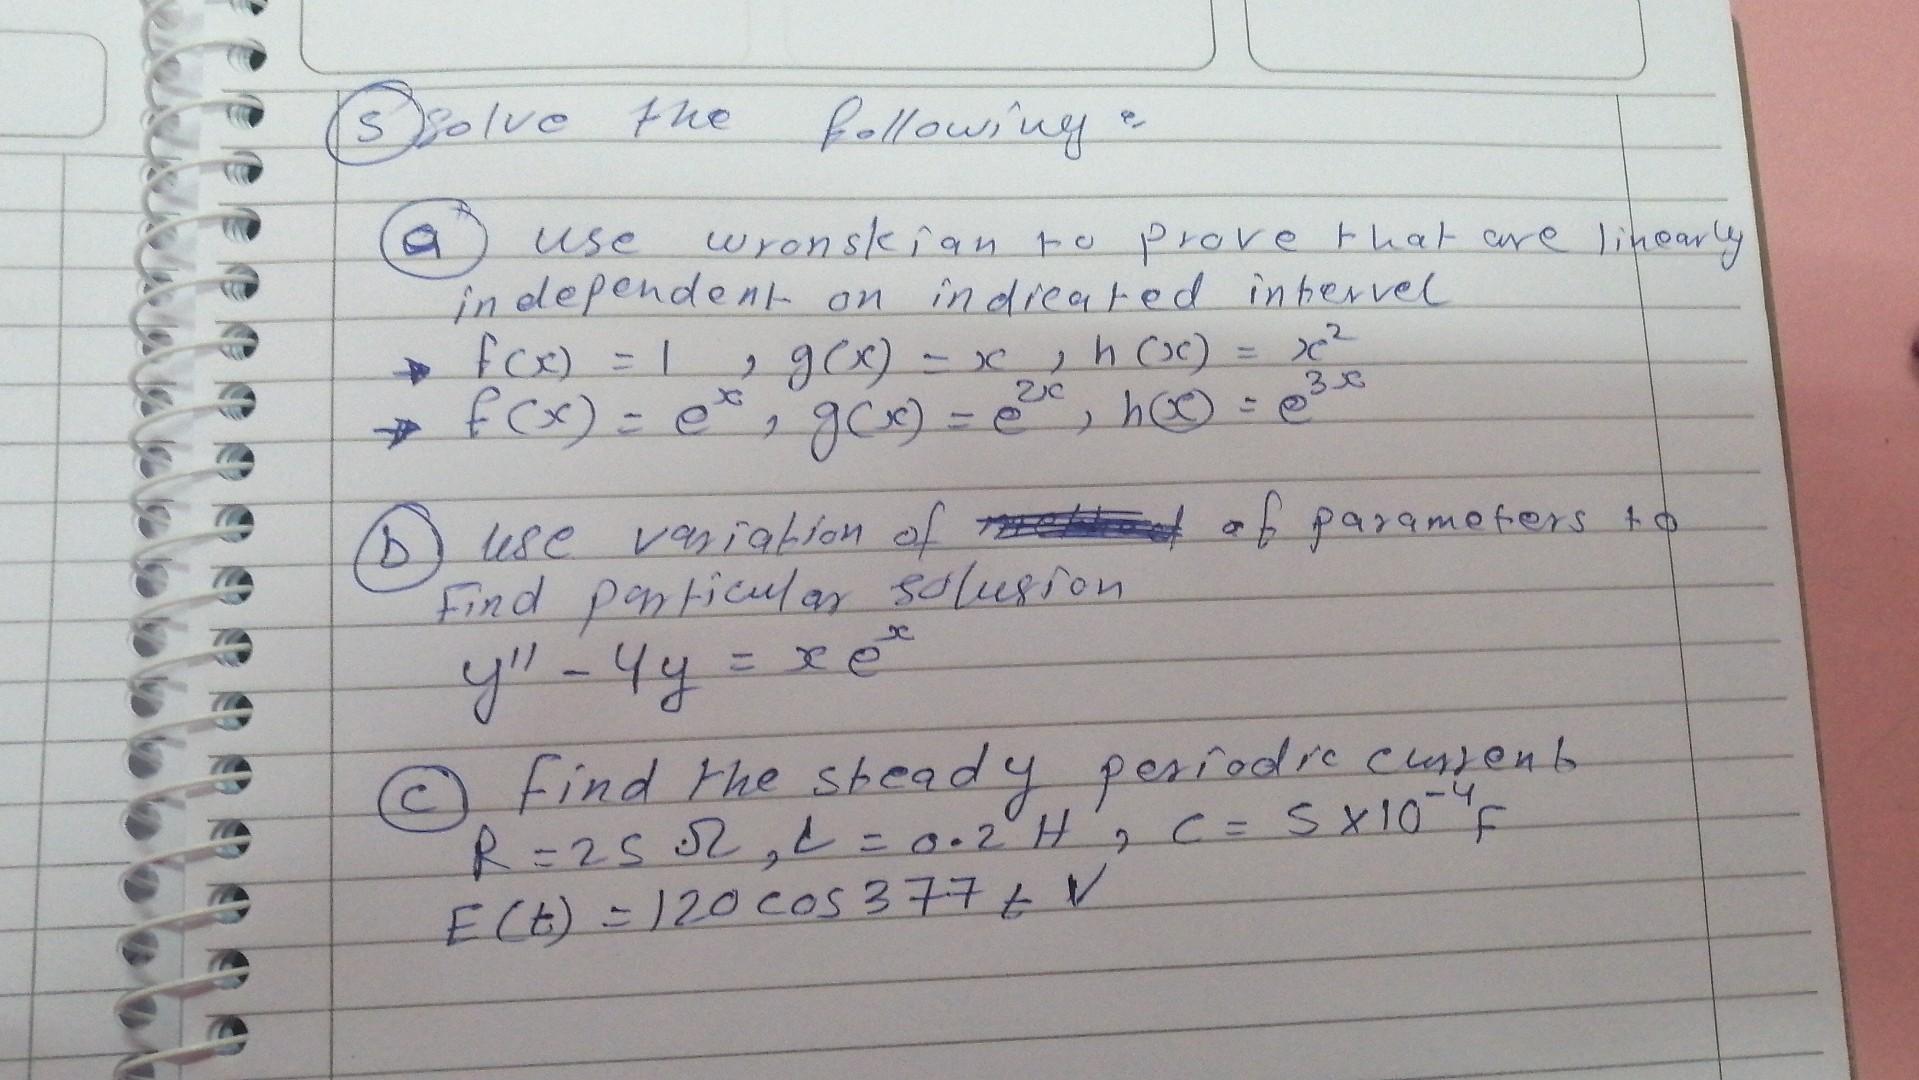 5 solve the following:
a use wronskian to prove that are linearly
independent on indicated intervel
→ f(x) = 1 , g(x) = x , h(x) = x²
→ f(x) = eˣ , g(x) = e²ˣ , h(x) = e³ˣ
b use variation of of parameters to
Find particular solusion
y'' - 4y = x eˣ
c find the steady periodic current
R = 25 Ω , L = 0.2 H , C = 5 x 10⁻⁴ F
E(t) = 120 cos 377 t V